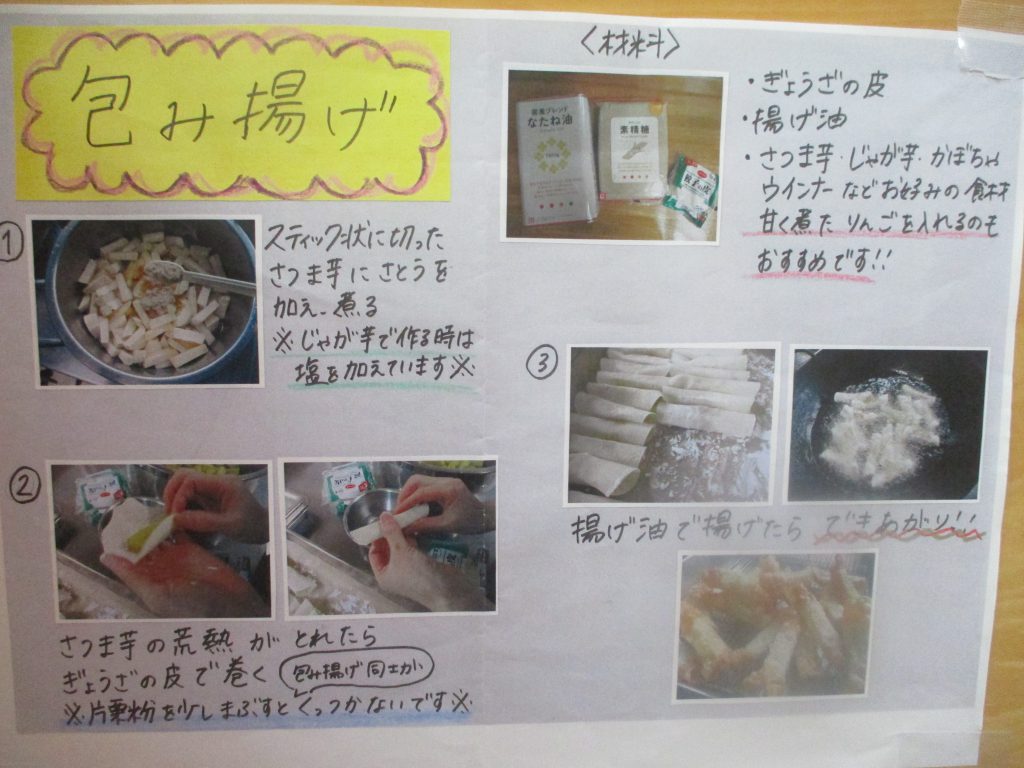 包み揚げ
〈材料〉
国産ブレンド
なたね油
素精糖
餃子の皮
・ぎょうざの皮
・揚げ油
・さつま芋・じゃが芋・かぼちゃ
ウインナーなどお好みの食材
甘く煮たりんごを入れるのも
おすすめです!!
①
スティック状に切った
さつま芋にさとうを
加え、煮る
※じゃが芋で作る時は
塩を加えています※
②
さつま芋の荒熱がとれたら
ぎょうざの皮で巻く
包み揚げ同士が
※片栗粉を少しまぶすとくっつかないです※
③
揚げ油で揚げたらできあがり!!